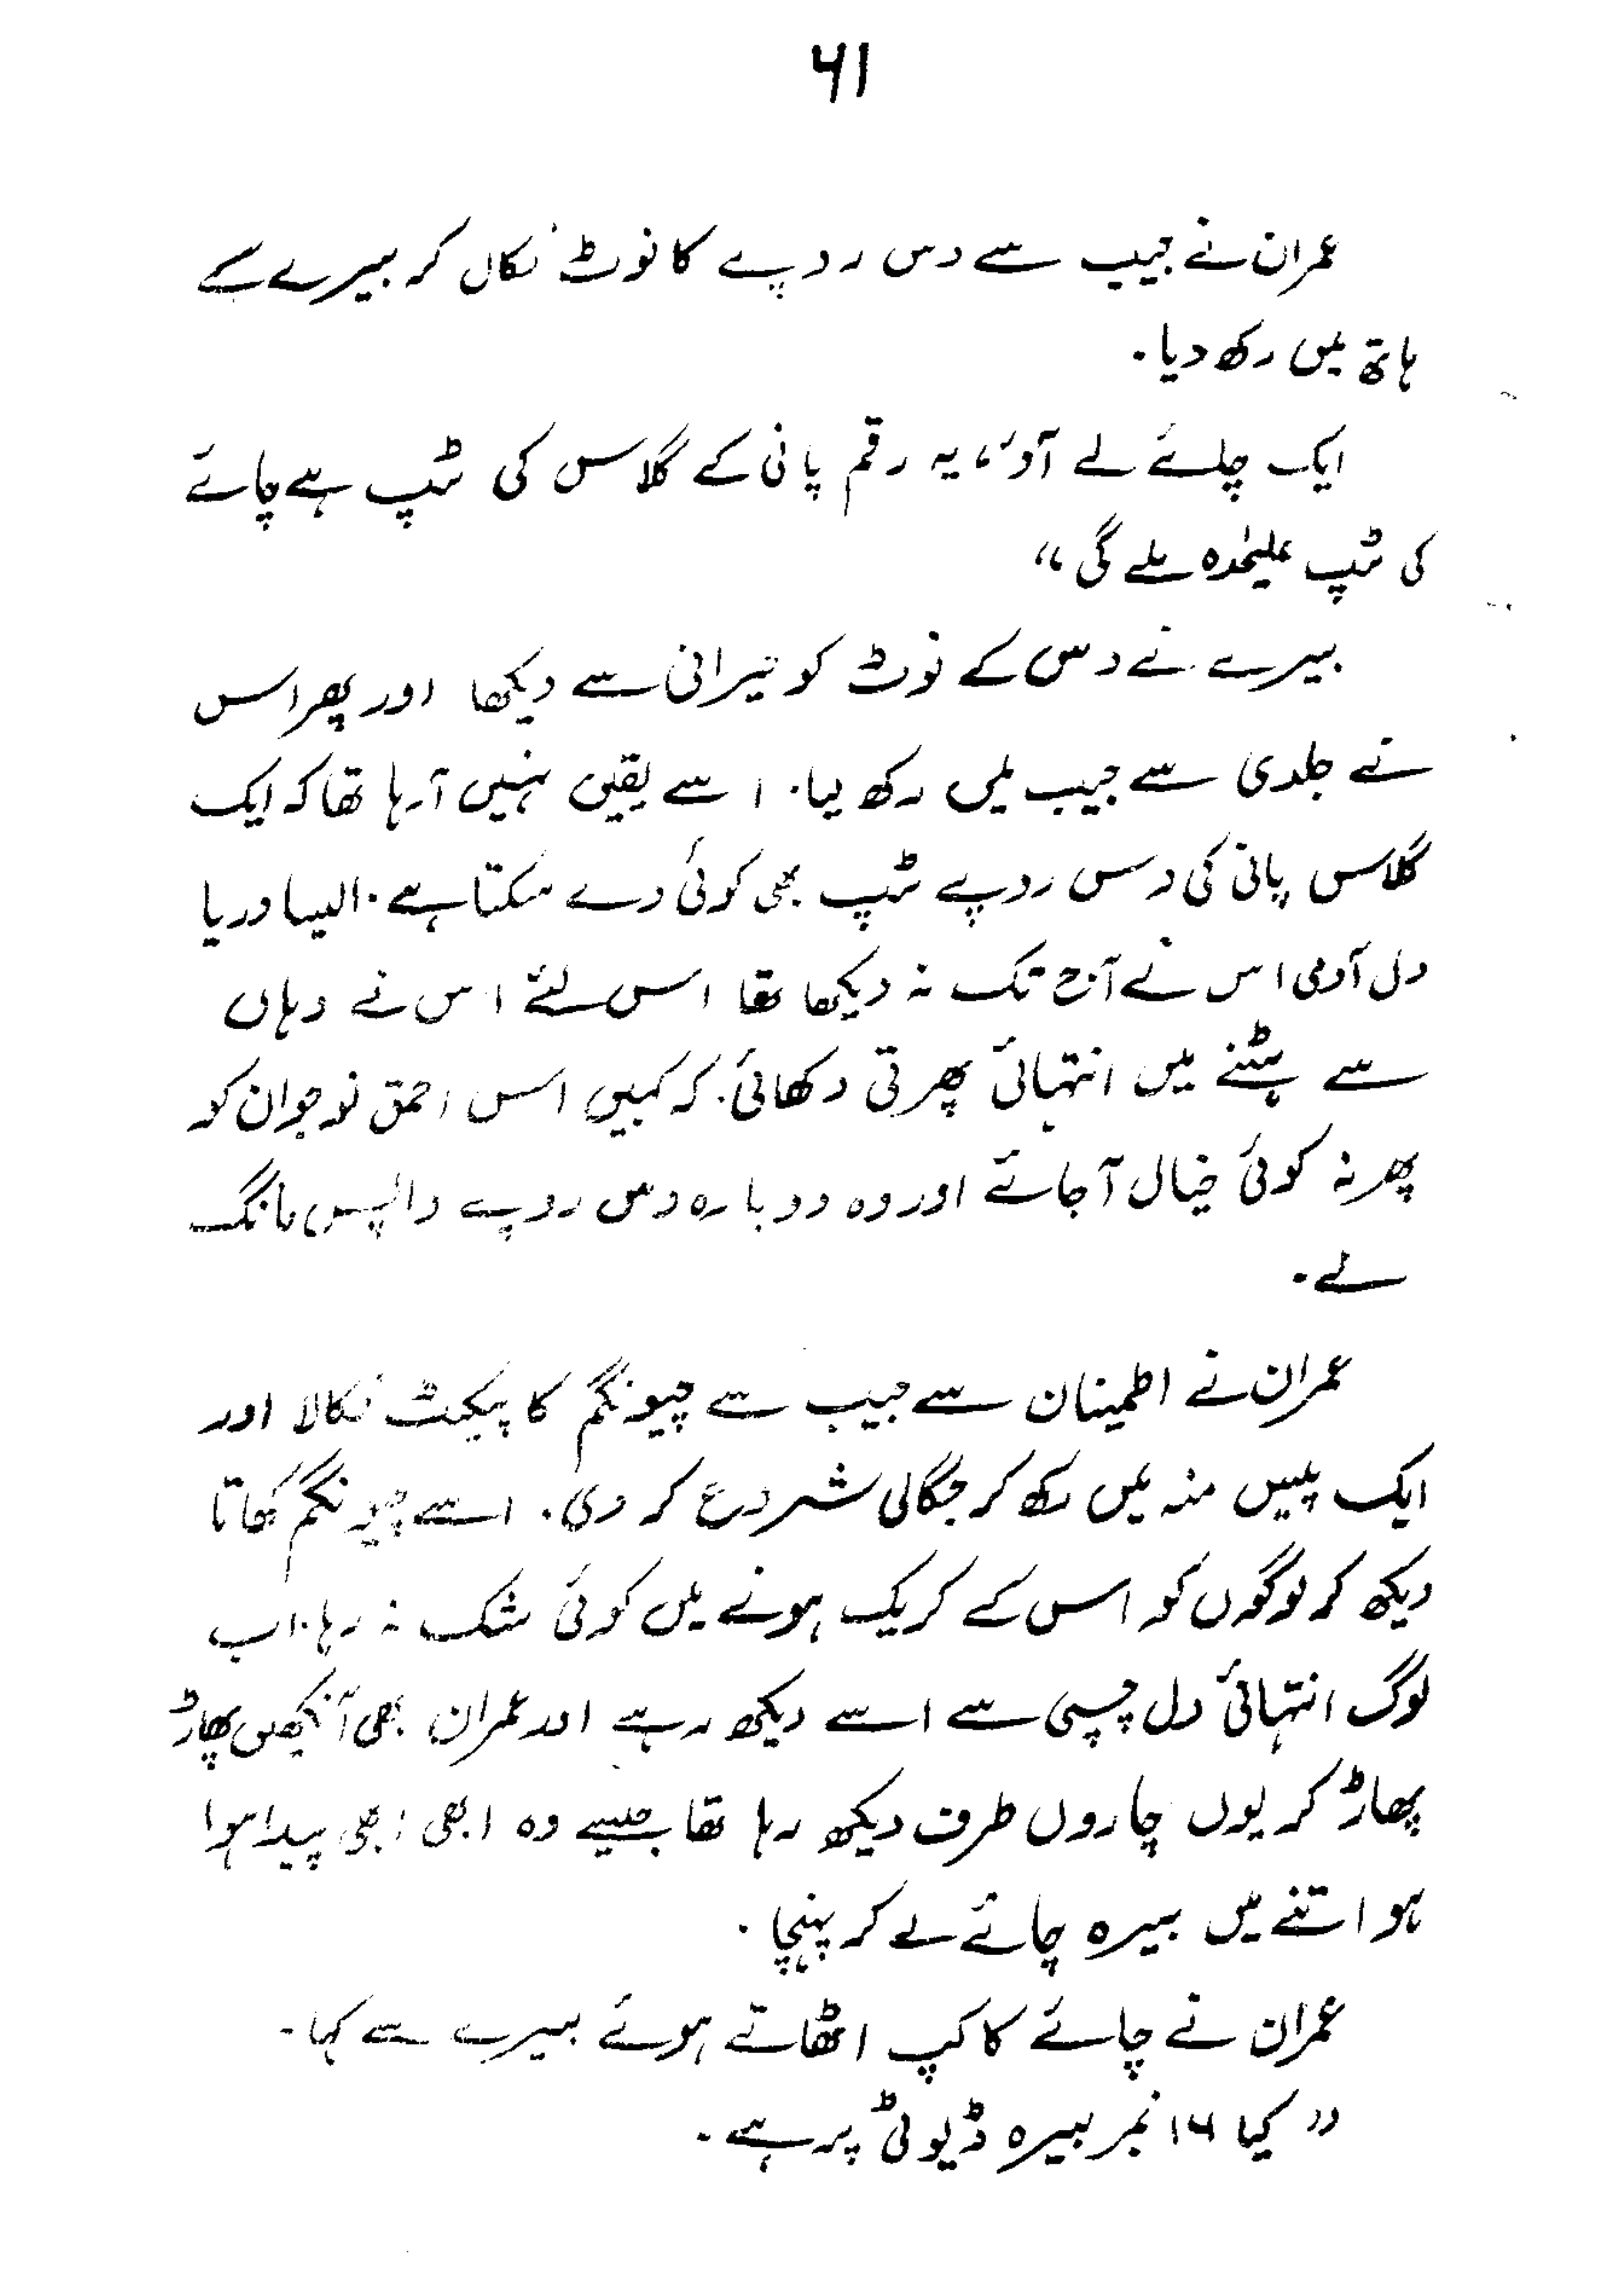 ۶۱
عمران نے جیب سے دس روپے کا نوٹ نکال کر بیرے کے
ہاتھ میں رکھ دیا.
ایک چائے لے آؤ، یہ رقم پانی کے گلاس کی ٹپ ہے چائے
کی ٹپ علیحٰدہ ملے گی“
بیرے نے دس کے نوٹ کو حیرانی سے دیکھا اور پھر اس
نے جلدی سے جیب میں رکھ لیا. اسے یقین نہیں آرہا تھا کہ ایک
گلاس پانی کی دس روپے ٹپ بھی کوئی دے سکتا ہے. ایسا دریا
دل آدمی اس نے آج تک نہ دیکھا تھا اس لئے اس نے وہاں
سے ہٹنے میں انتہائی پھرتی دکھائی. کہ کہیں اس احمق نوجوان کو
پھر نہ کوئی خیال آجائے اور وہ دوبارہ دس روپے واپس مانگ
لے.
عمران نے اطمینان سے جیب سے چیونگم کا پیکٹ نکالا اور
ایک پیس منہ میں رکھ کر جگالی شروع کر دی. اسے چیونگم کھاتا
دیکھ کر لوگوں کو اس کے کریک ہونے میں کوئی شک نہ رہا. اب
لوگ انتہائی دل چسپی سے اسے دیکھ رہے اور عمران بھی آنکھیں پھاڑ
پھاڑ کر یوں چاروں طرف دیکھ رہا تھا جیسے وہ ابھی ابھی پیدا ہوا
ہو اتنے میں بیرہ چائے لے کر پہنچا.
عمران نے چائے کا کپ اٹھاتے ہوئے بیرے سے کہا۔
” کیا ۱۶ نمبر بیرہ ڈیوٹی پر ہے.